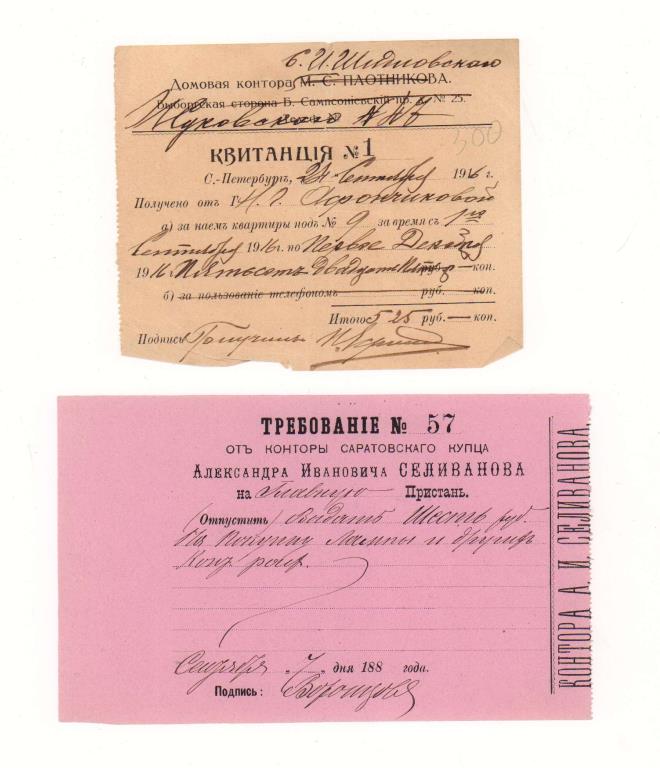 Домовая контора М. С. ПЛОТНИКОВА.
Выборгская сторона Б. Сампсоніевскій пр. д. № 25.
Жуковского
300
КВИТАНЦІЯ № 1
С.-Петербургъ, 24 Сентября 1916 г.
Получено отъ Г
а) за наемъ квартиры подъ № 9 за время съ 1го
Сентября 1916 г. по Первое Декабря
1916 г. Пятьсотъ Двадцать Пять руб. — коп.
б) за пользованіе телефономъ руб. — коп.
Итого 525 руб. — коп.
Подпись Получилъ
ТРЕБОВАНІЕ № 57
ОТЪ КОНТОРЫ САРАТОВСКАГО КУПЦА
АЛЕКСАНДРА ИВАНОВИЧА СЕЛИВАНОВА
на Главную Пристань.
(Отпустить) Выдать Шесть руб.
На Покупку Лампы и другихъ
Сентября 7 дня 188 года.
Подпись:
КОНТОРА А. И. СЕЛИВАНОВА.